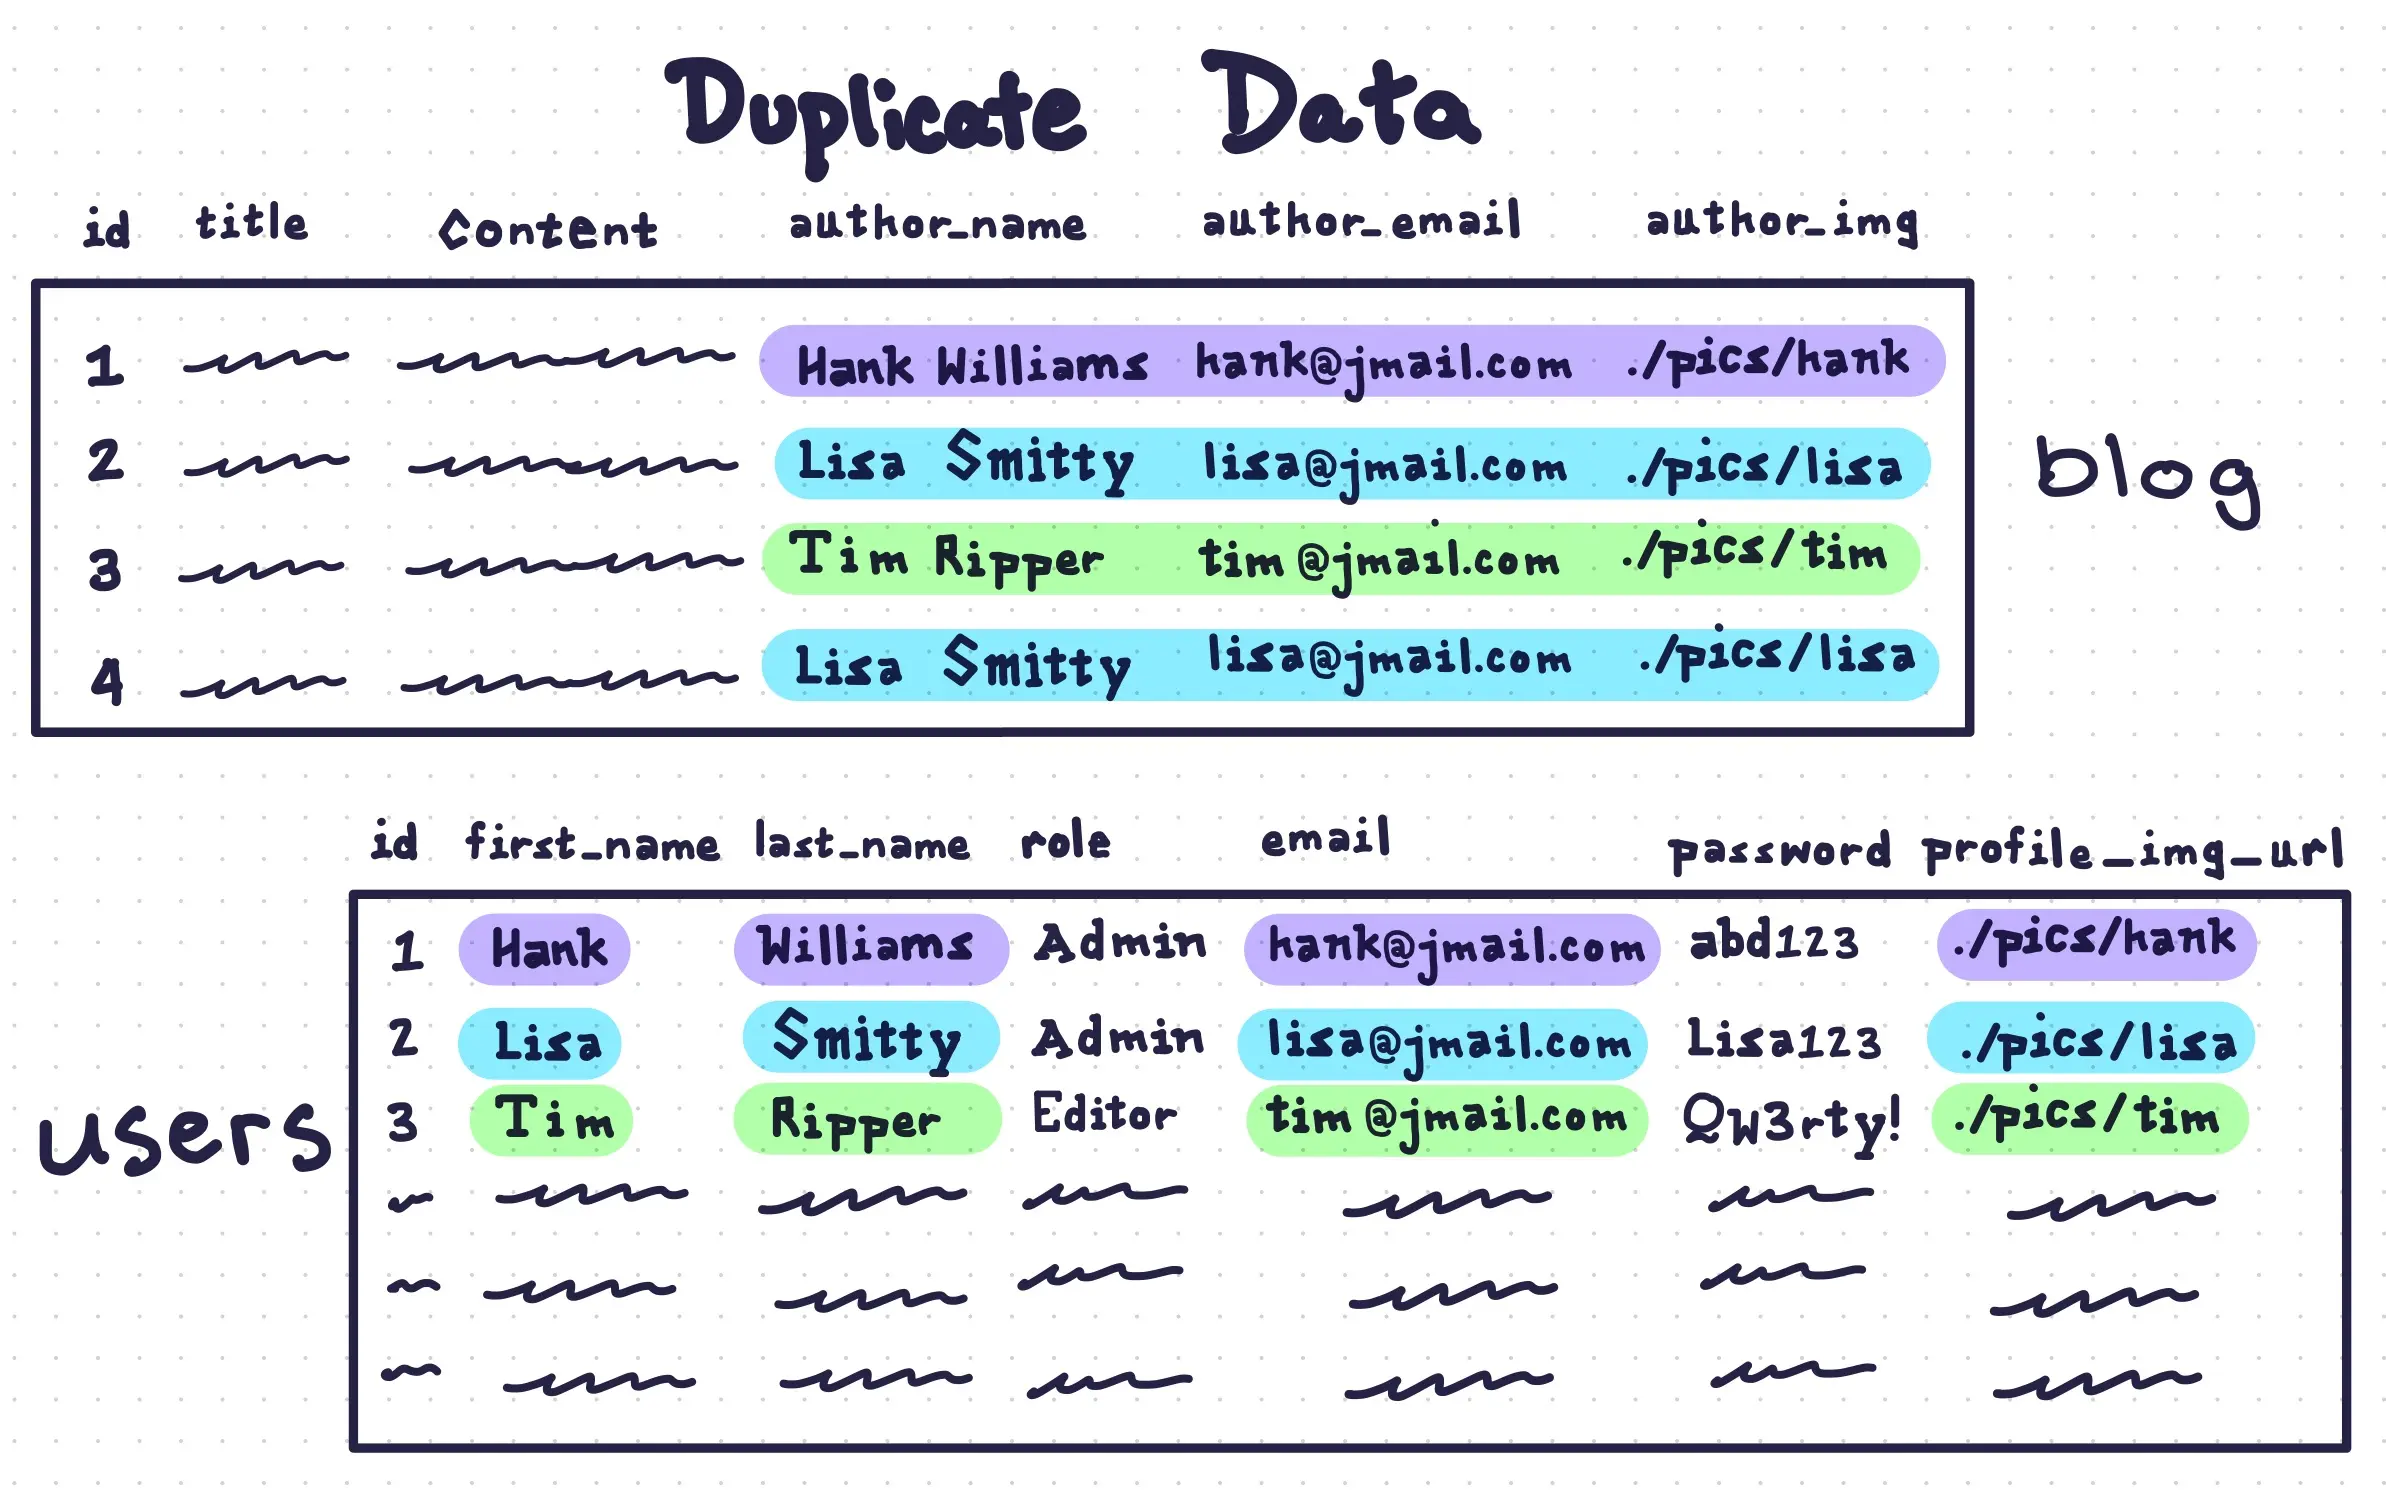 Duplicate Data
id title Content author_name author_email author_img
1 Hank Williams hank@jmail.com ./pics/hank
2 Lisa Smitty lisa@jmail.com ./pics/lisa
blog
3 Tim Ripper tim@jmail.com ./pics/tim
4 Lisa Smitty lisa@jmail.com ./pics/lisa
id first_name last_name role email password profile_img_url
1 Hank Williams Admin hank@jmail.com abd123 ./pics/hank
2 Lisa Smitty Admin lisa@jmail.com Lisa123 ./pics/lisa
users
3 Tim Ripper Editor tim@jmail.com QW3rty! ./pics/tim